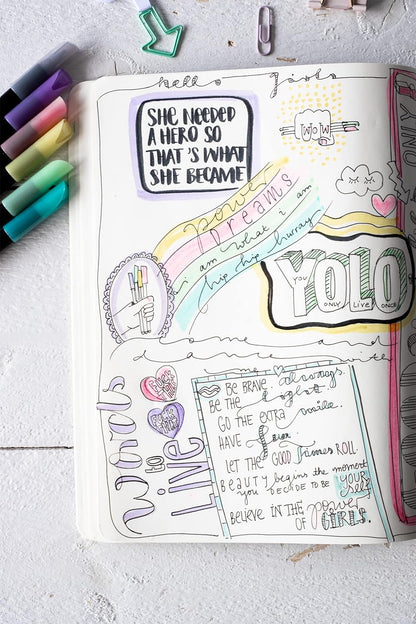 hello girls
SHE NEEDED
A HERO SO
THAT'S WHAT
SHE BECAME
WOW
power
DREAMS
i am what i am
hip hip hurray
YOLO
YOU ONLY LIVE ONCE
come and
dance with
Words
to
Live
BE BRAVE. always.
BE THE light
GO THE EXTRA mile.
HAVE fun.
LET THE GOOD times ROLL.
BEAUTY begins the moment
you DECIDE TO BE YOUR
self
Believe IN THE power
OF GIRLS.
ONLY